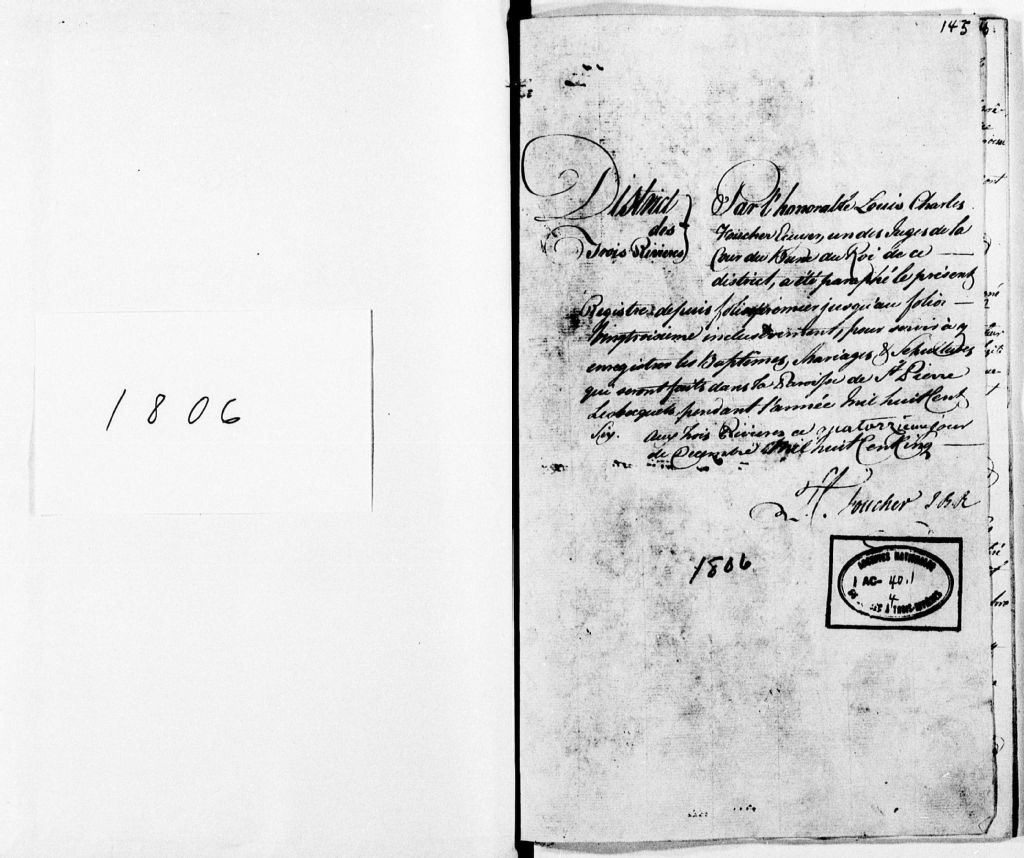 1806
145
District
des
Trois Rivieres
Par l'honorable Louis Charles
Foucher Ecuier, un des Juges de la
Cour du Banc du Roi de ce
district, a été paraphé le présent
Registre depuis folio premier jusqu'au folio
Vingtroisieme inclusivement, pour servir à y
enregistrer les Baptemes, Mariages & Sépultures
qui seront faits dans la Paroisse de St Pierre
Lesbecquets pendant l'année Mil huit Cent
Six. Aux Trois Rivieres ce quatorzieme jour
de Decembre Mil huit Cent Cinq
Foucher J B R
1806
ARCHIVES NATIONALES
AC- 40.1
4
A TROIS-RIVIERES